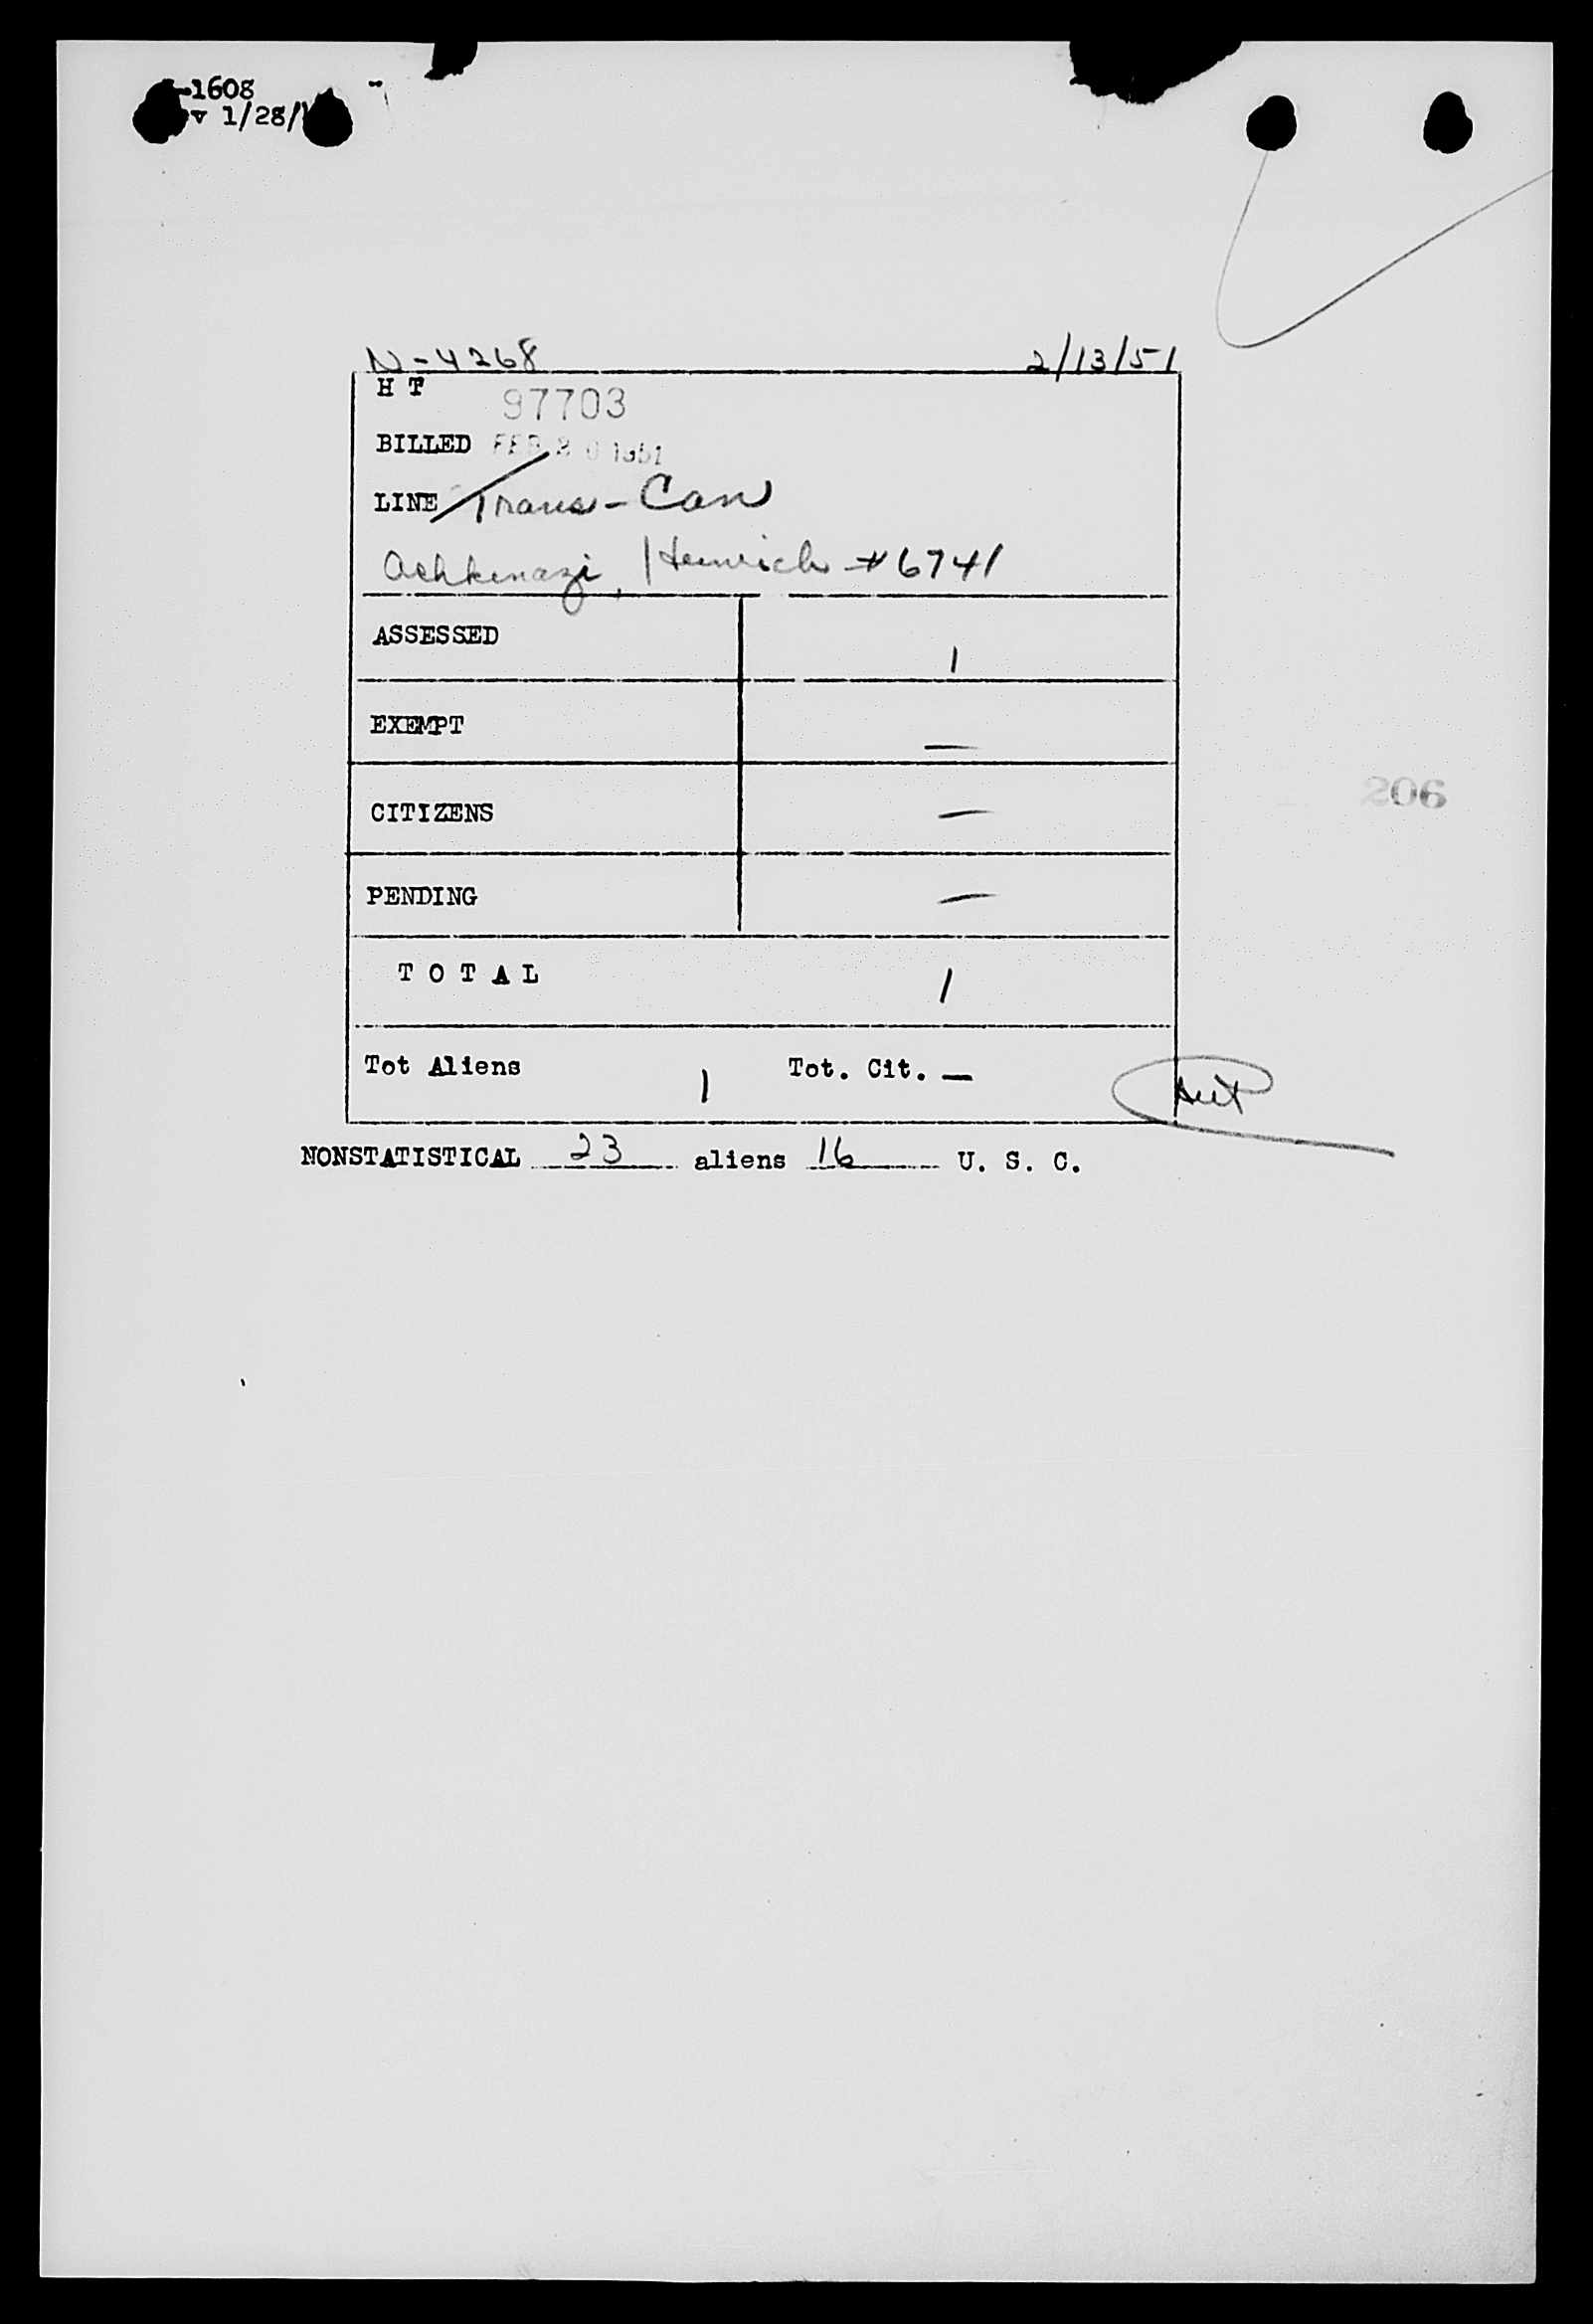 -1608
v 1/28/
N-4268 2/13/51
H T 97703
BILLED FEB 20 1951
LINE Trans-Can
Ashkenazi, Heinrich #6741
ASSESSED 1
EXEMPT —
CITIZENS —
206
PENDING —
T O T A L 1
Tot Aliens 1 Tot. Cit. —
NONSTATISTICAL 23 aliens 16 U. S. C.